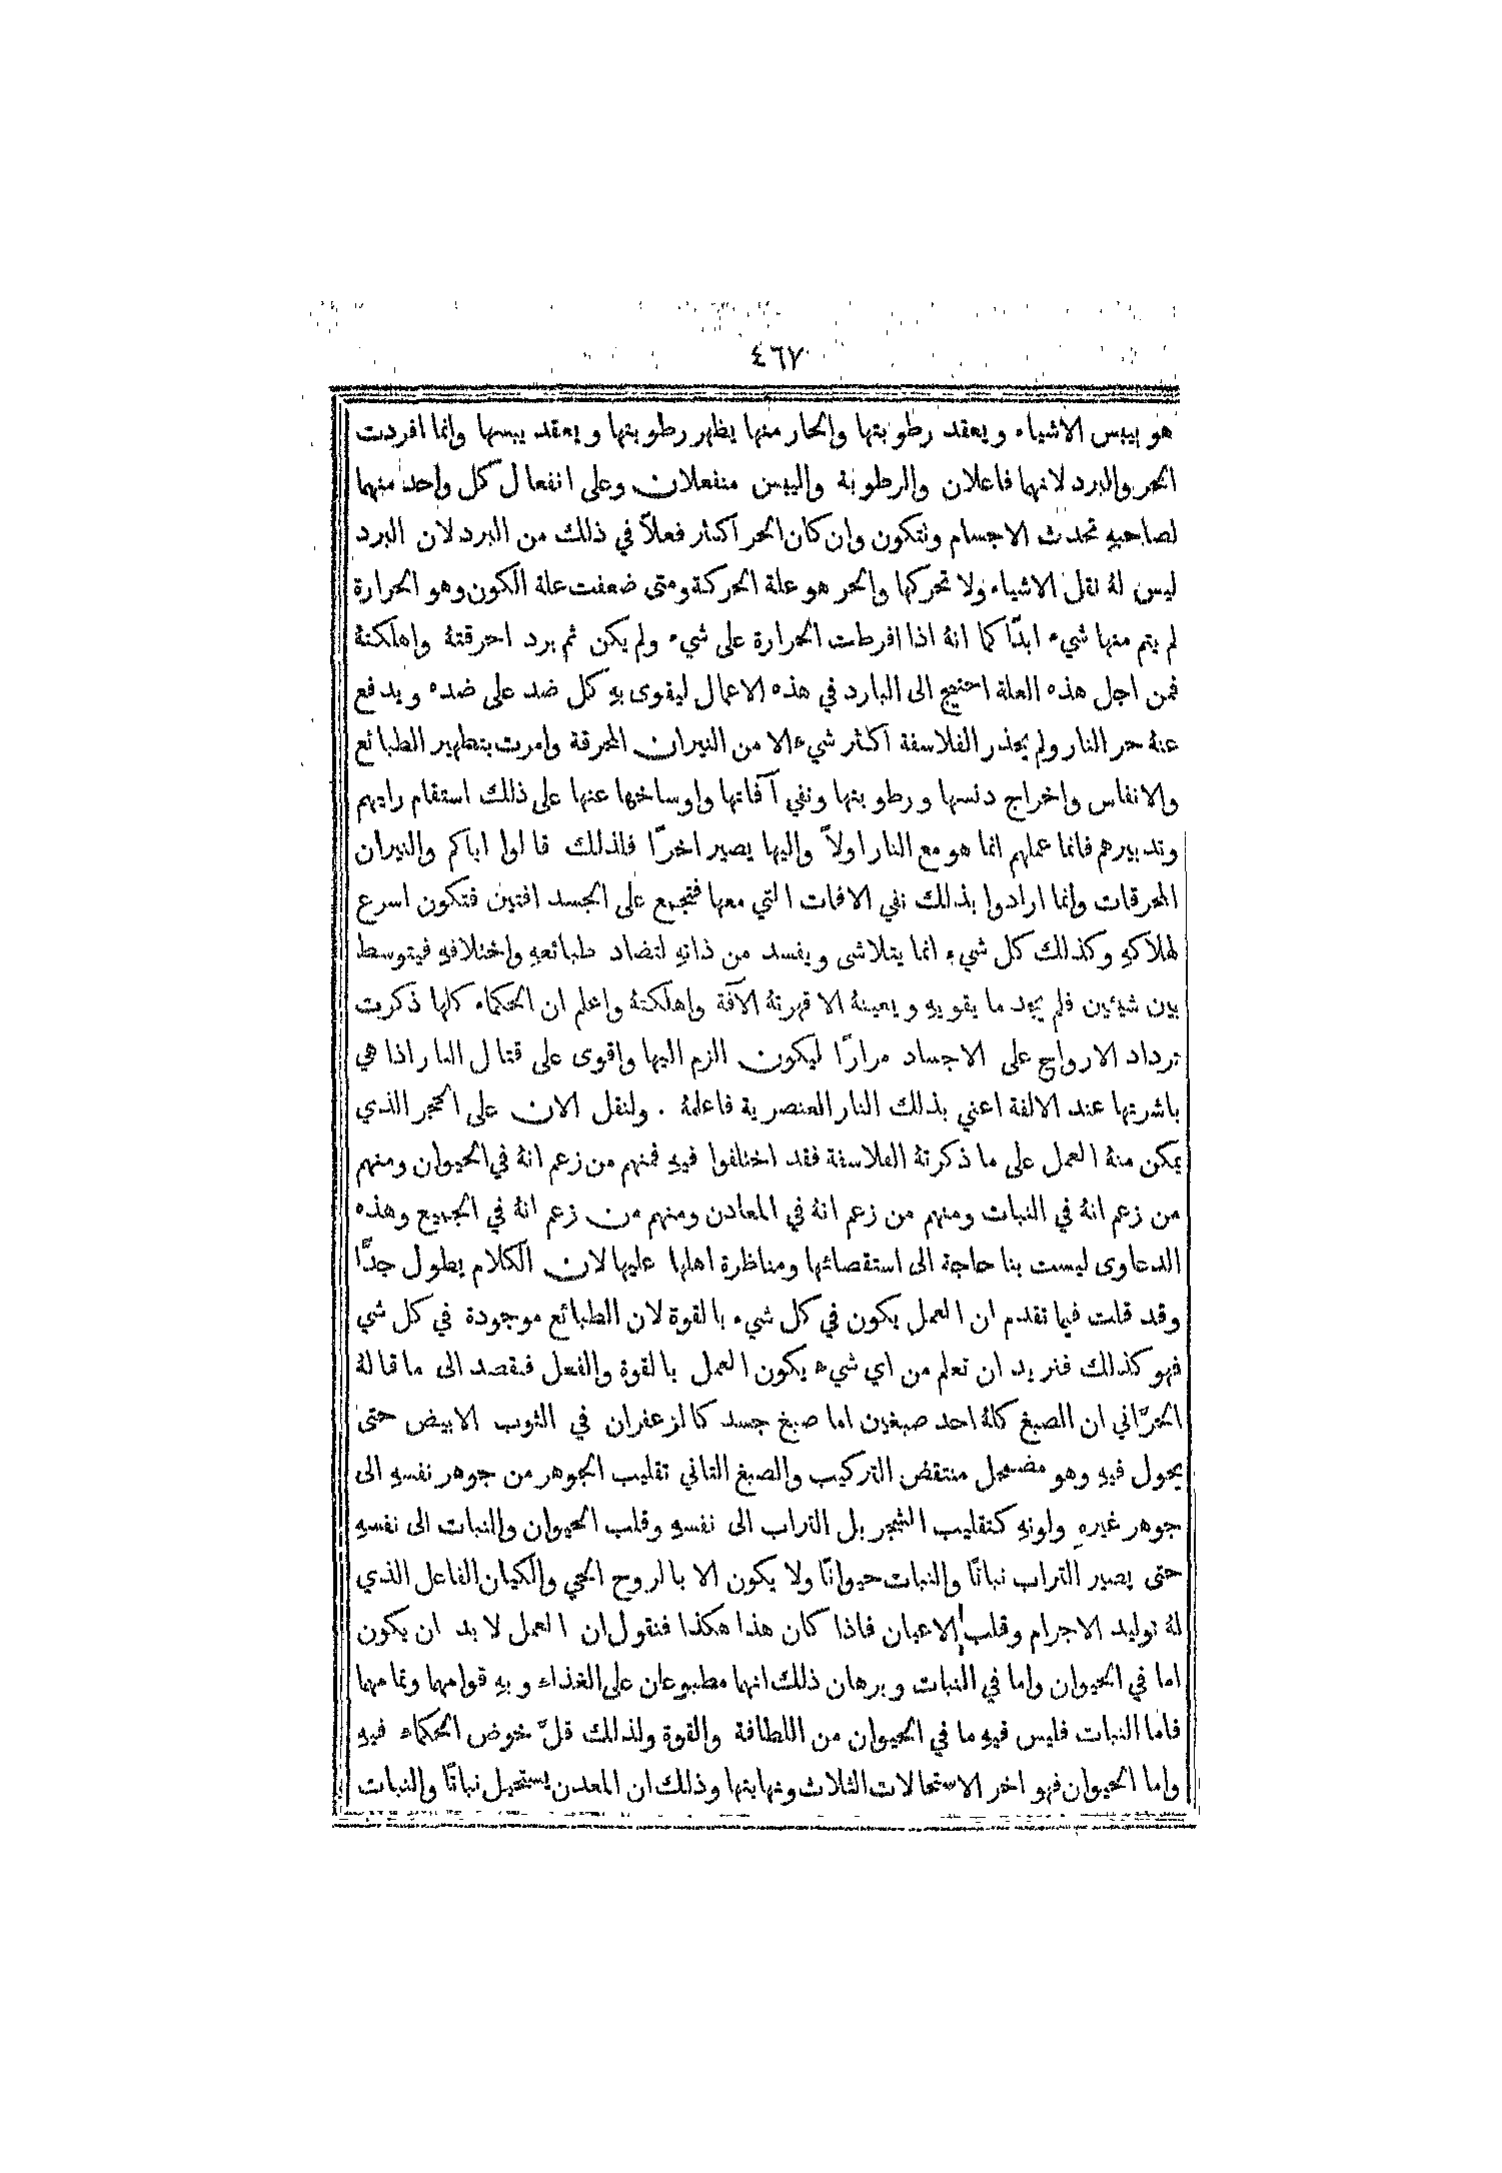 ٤٦٧
هو ييبس الاشياء ويعقد رطوبتها والحار منها يظهر رطوبتها ويعقد يبسها وانما افردت
الحر والبرد لانهما فاعلان والرطوبة واليبس منفعلان وعلى انفعال كل واحد منهما
لصاحبهِ تحدث الاجسام وتتكون وان كان الحر اكثر فعلاً في ذلك من البرد لان البرد
ليس لهُ نقل الاشياء ولا تحركها والحر هو علة الحركة ومتى ضعفت علة الكون وهو الحرارة
لم يتم منها شيء ابدًا كما انهُ اذا افرطت الحرارة على شيء ولم يكن ثم برد احرقتهُ واهلكتهُ
فمن اجل هذه العلة احتيج الى البارد في هذه الاعمال ليقوى بهِ كل ضد على ضده ويدفع
عنهُ حر النار ولم يحذر الفلاسفة اكثر شيء الا من النيران المحرقة وامرت بتطهير الطبائع
والانفاس واخراج دنسها ورطوبتها ونفي آفاتها واوساخها عنها على ذلك استقام رايهم
وتدبيرهم فانما عملهم انما هو مع النار اولاً واليها يصير اخرًا فلذلك قالوا اياكم والنيران
المحرقات وانما ارادوا بذلك نفي الافات التي معها فتجمع على الجسد افتين فتكون اسرع
لهلاكهِ وكذلك كل شيء انما يتلاشى ويفسد من ذاتهِ لتضاد طبائعهِ واختلافهِ فيتوسط
بين شيئين فلم يجد ما يقويهِ ويعينهُ الا قهرتهُ الآفة واهلكتهُ واعلم ان الحكماء كلها ذكرت
ترداد الارواح على الاجساد مرارًا ليكون الزم اليها واقوى على قتال النار اذا هي
باشرتها عند الالفة اعني بذلك النار العنصرية فاعلمهُ . ولنقل الان على الحجر الذي
يمكن منهُ العمل على ما ذكرتهُ الفلاسفة فقد اختلفوا فيهِ فمنهم من زعم انهُ في الحيوان ومنهم
من زعم انهُ في النبات ومنهم من زعم انهُ في المعادن ومنهم من زعم انهُ في الجميع وهذه
الدعاوى ليست بنا حاجة الى استقصائها ومناظرة اهلها عليها لان الكلام يطول جدًّا
وقد قلت فيما تقدم ان العمل يكون في كل شيء بالقوة لان الطبائع موجودة في كل شي
فهو كذلك فنريد ان تعلم من اي شيء يكون العمل بالقوة والفعل فنقصد الى ما قالهُ
الحرّاني ان الصبغ كلهُ احد صبغين اما صبغ جسد كالزعفران في الثوب الابيض حتى
يحول فيهِ وهو مضمحل منتقض التركيب والصبغ الثاني تقليب الجوهر من جوهر نفسهِ الى
جوهر غيرهِ ولونهِ كتقليب الشجر بل التراب الى نفسهِ وقلب الحيوان والنبات الى نفسهِ
حتى يصير التراب نباتًا والنبات حيوانًا ولا يكون الا بالروح الحي والكيان الفاعل الذي
لهُ توليد الاجرام وقلب الاعيان فاذا كان هذا هكذا فنقول ان العمل لا بد ان يكون
اما في الحيوان واما في النبات وبرهان ذلك انهما مطبوعان على الغذاء وبهِ قوامهما وتمامهما
فاما النبات فليس فيهِ ما في الحيوان من اللطافة والقوة ولذلك قلّ خوض الحكماء فيهِ
واما الحيوان فهو اخر الاستحالات الثلاث ونهايتها وذلك ان المعدن يستحيل نباتًا والنبات